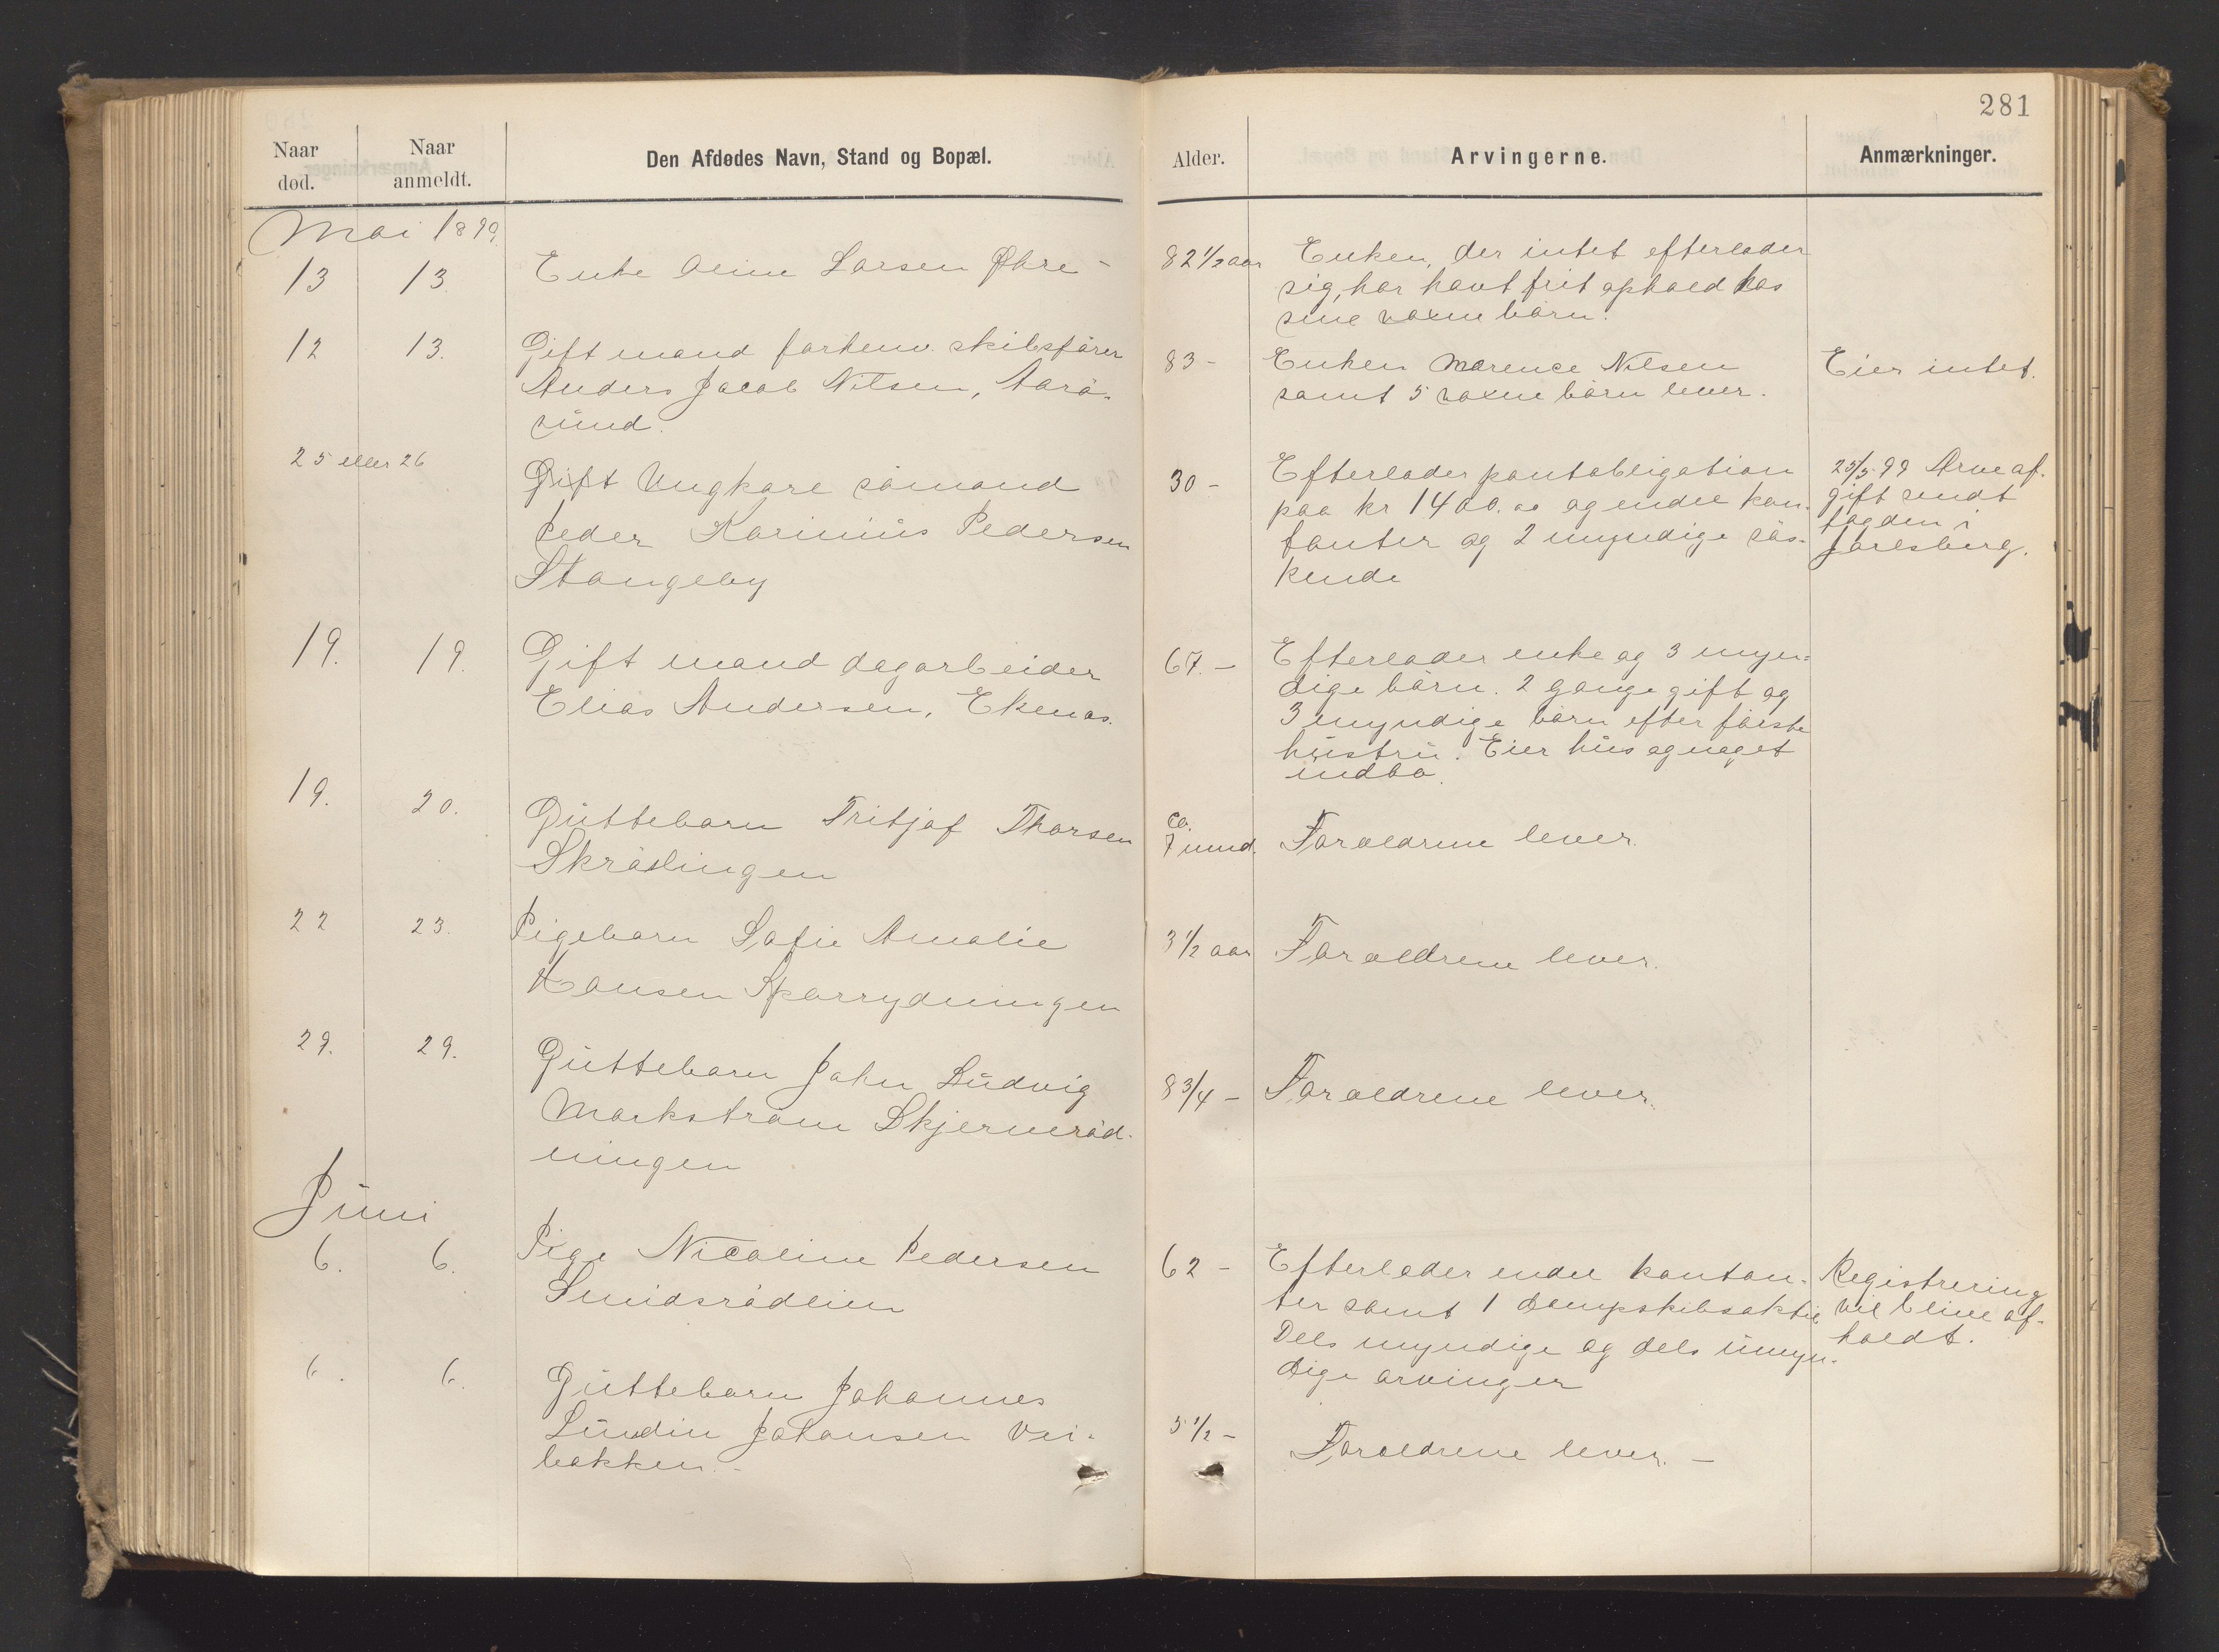 281
Naar død.
Naar anmeldt.
Den Afdødes Navn, Stand og Bopæl.
Alder.
Arvingerne.
Anmærkninger.
Mai 1899.
13 13. Enke Oline Larsen Øhre -
82 1/2 aar Enken, der intet efterlader
sig, har havt frit ophold hos
sine voxne børn.
12 13. Gift mand forhenv. skibsfører
Anders Jacob Nilsen, Aarø-
sund.
83 - Enken Marence Nilsen
samt 5 voxne børn lever.
Eier intet.
25 eller 26 Gift Ungkare sømand
Peder Karinius Pedersen
Stangeby
30 - Efterlader pantobligation
paa kr 1400.00 og endel kon-
tanter og 2 myndige søs-
kende
25/5 99 Arveaf-
gift sendt
fogden i
Jarlsberg.
19. 19. Gift mand dagarbeider
Elias Andersen, Ekenæs.
67. - Efterlader enke og 3 myn-
dige børn. 2 gange gift og
3 myndige børn efter første
hustru. Eier hus og noget
indbo.
19. 20. Guttebarn Fritjof Thorsen
Skrællingen
ca.
7 mnd. Forældrene lever.
22 23. Pigebarn Sofie Amalie
Hansen Sporrydningen
3 1/2 aar Forældrene lever.
29. 29. Guttebarn John Ludvig
Markstrøm Skjernerød-
ningen
8 3/4 - Forældrene lever.
Juni
6. 6. Pige Nicoline Pedersen
Smidsrødlien
62 - Efterlader endel kontan-
ter samt 1 dampskibsaktie
Dels myndige og dels umyn-
dige arvinger
Registrering
vil blive af-
holdt.
6. 6. Guttebarn Johannes
Lundin Johansen Vei-
bakken. -
5 1/2 - Forældrene lever. -